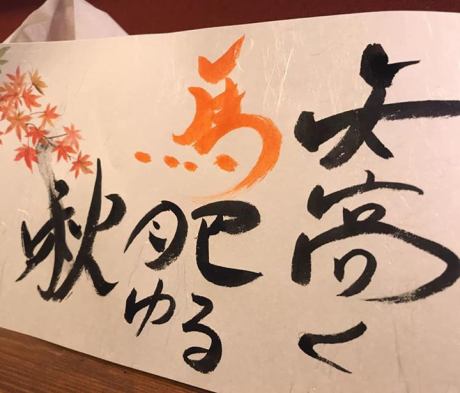 天高く
馬肥ゆる
秋